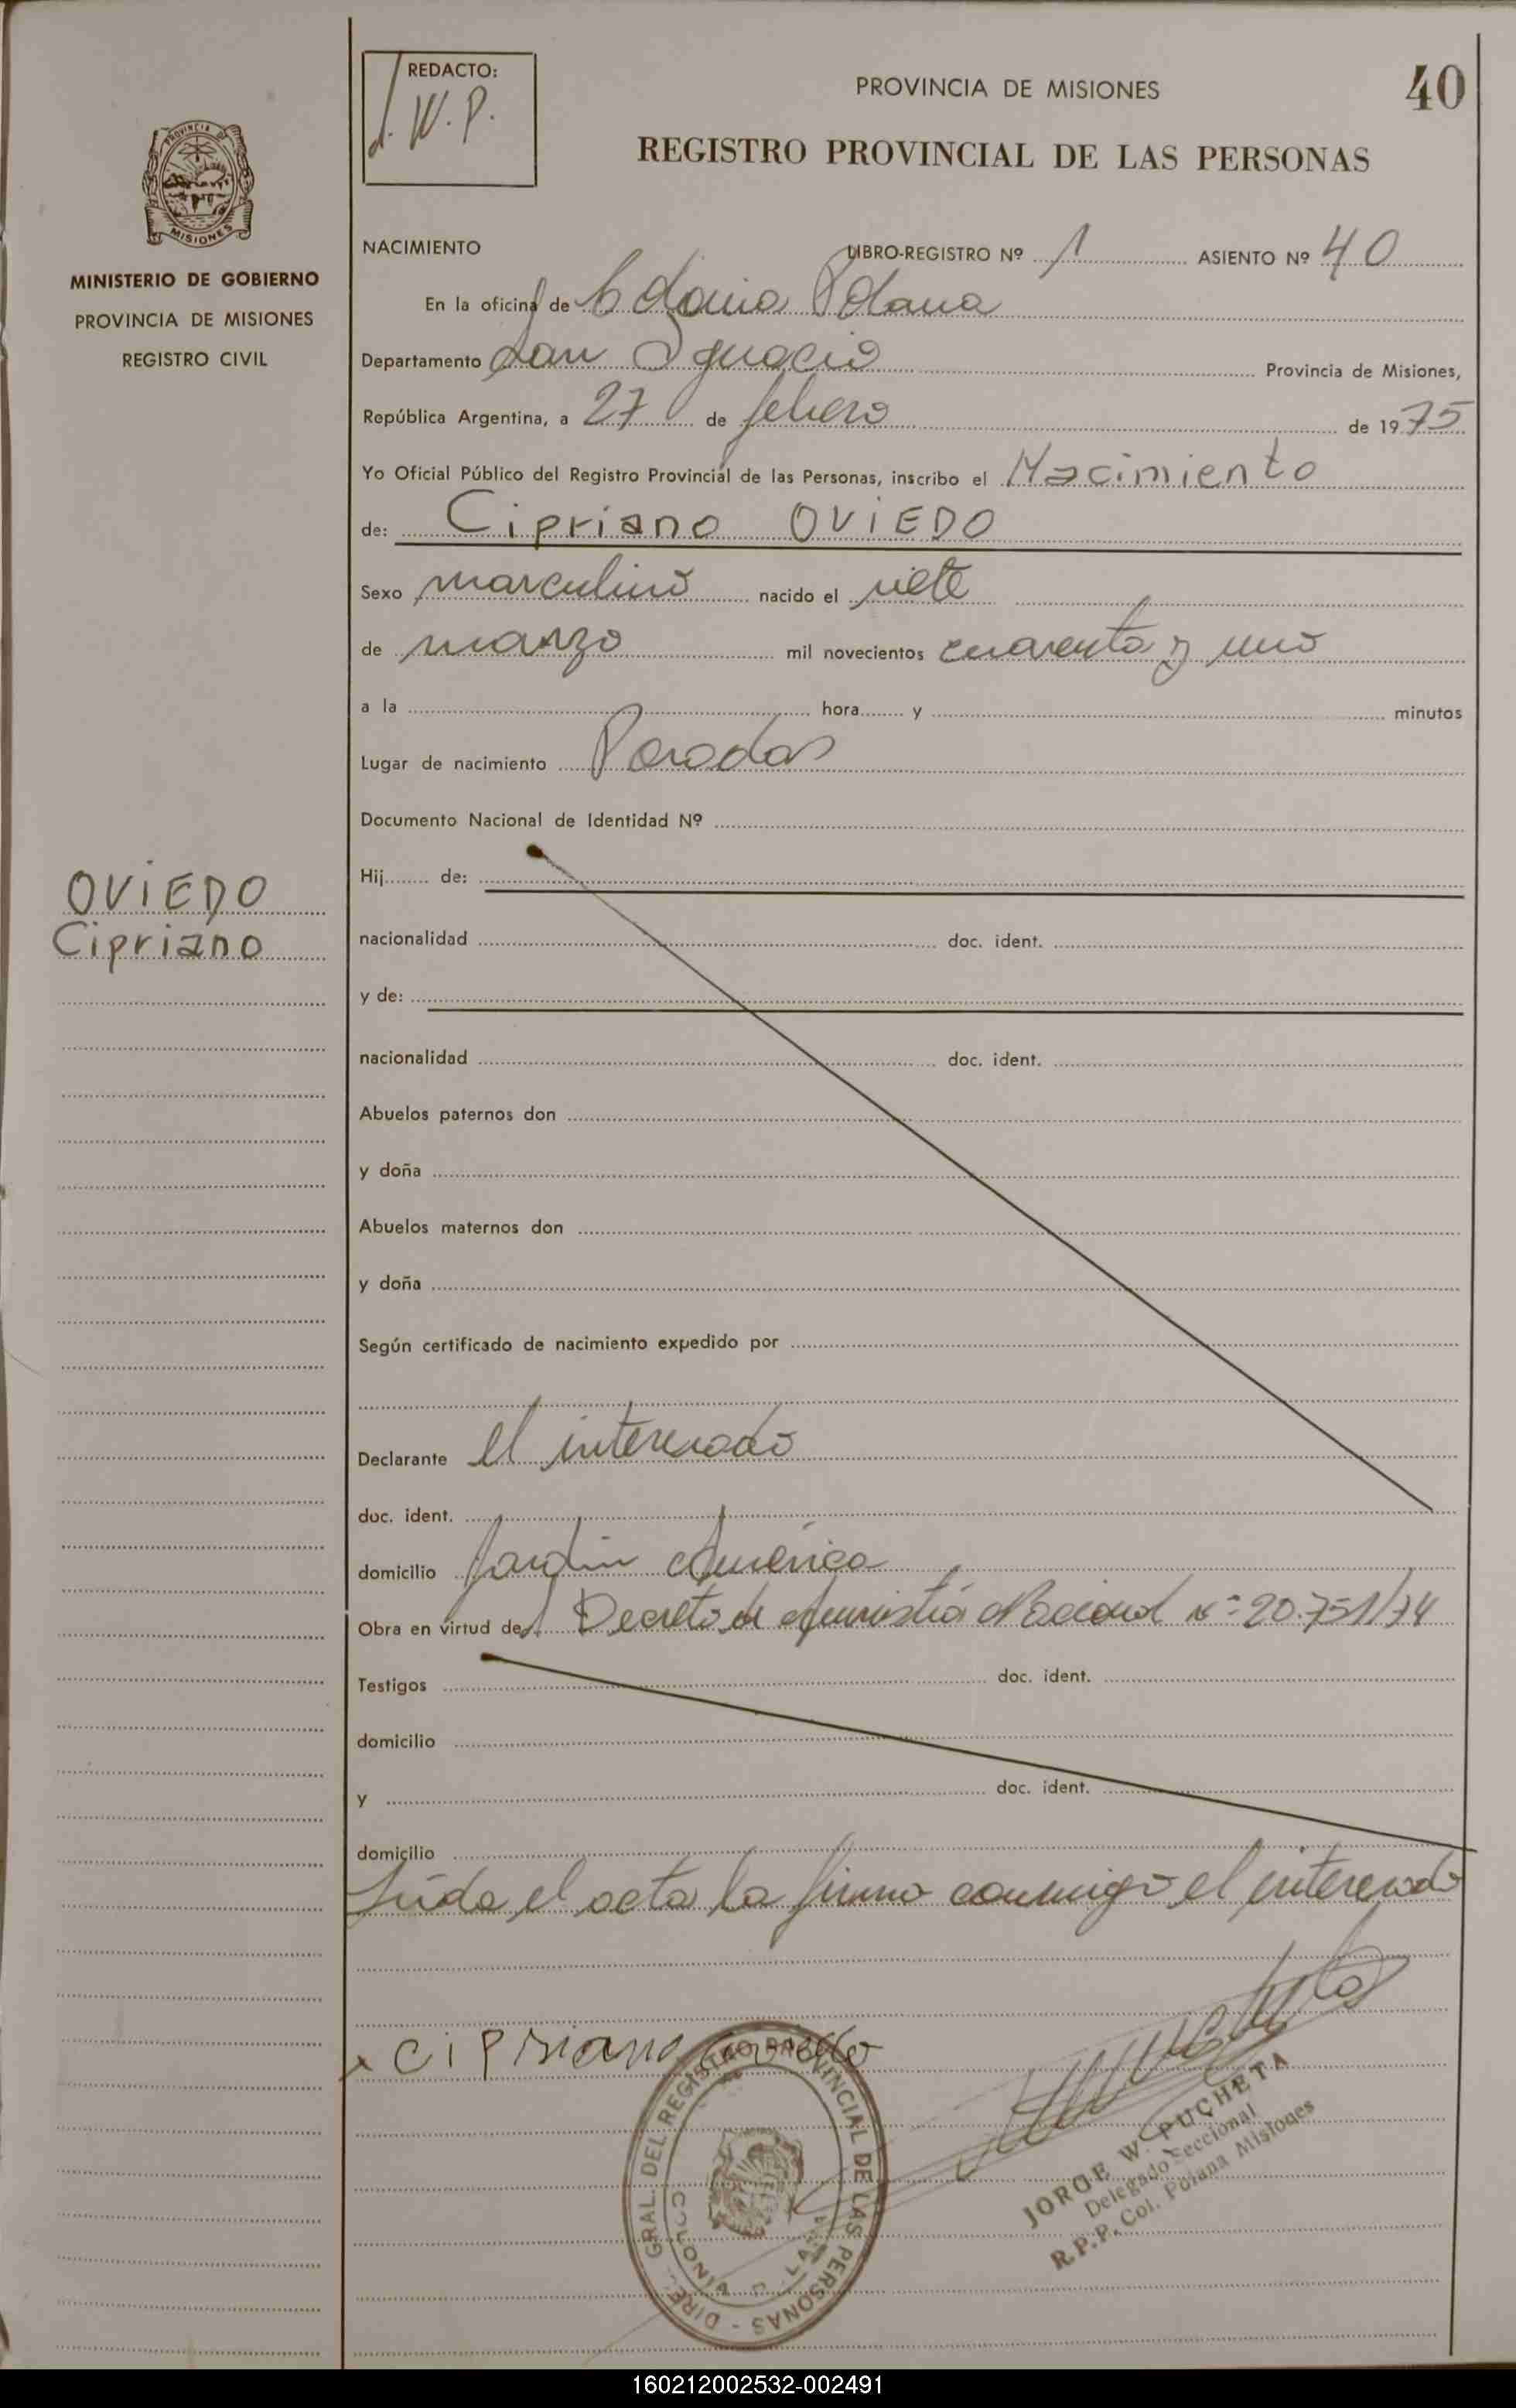 REDACTO:
J. W. P.
PROVINCIA DE MISIONES
40
REGISTRO PROVINCIAL DE LAS PERSONAS
PROVINCIA DE
MISIONES
MINISTERIO DE GOBIERNO
PROVINCIA DE MISIONES
REGISTRO CIVIL
OVIEDO
Cipriano
NACIMIENTO LIBRO-REGISTRO Nº 1 ASIENTO Nº 40
En la oficina de Colonia Polana
Departamento San Ignacio Provincia de Misiones,
República Argentina, a 27 de febrero de 1975
Yo Oficial Público del Registro Provincial de las Personas, inscribo el Nacimiento
de: Cipriano OVIEDO
Sexo masculino nacido el siete
de marzo mil novecientos cuarenta y uno
a la hora y minutos
Lugar de nacimiento Posadas
Documento Nacional de Identidad Nº
Hij de:
nacionalidad doc. ident.
y de:
nacionalidad doc. ident.
Abuelos paternos don
y doña
Abuelos maternos don
y doña
Según certificado de nacimiento expedido por
Declarante el interesado
doc. ident.
domicilio Jardin América
Obra en virtud de Decreto de Amnistia Nacional Nº 20.751/74
Testigos doc. ident.
domicilio
y doc. ident.
domicilio
Leida el acta la firma conmigo el interesado
x Cipriano Oviedo
DIRE. GRAL. DEL REGISTRO PROVINCIAL DE LAS PERSONAS -
JORGE W. PUCHETA
Delegado Seccional
R.P.P. Col. Polana Misiones
160212002532-002491